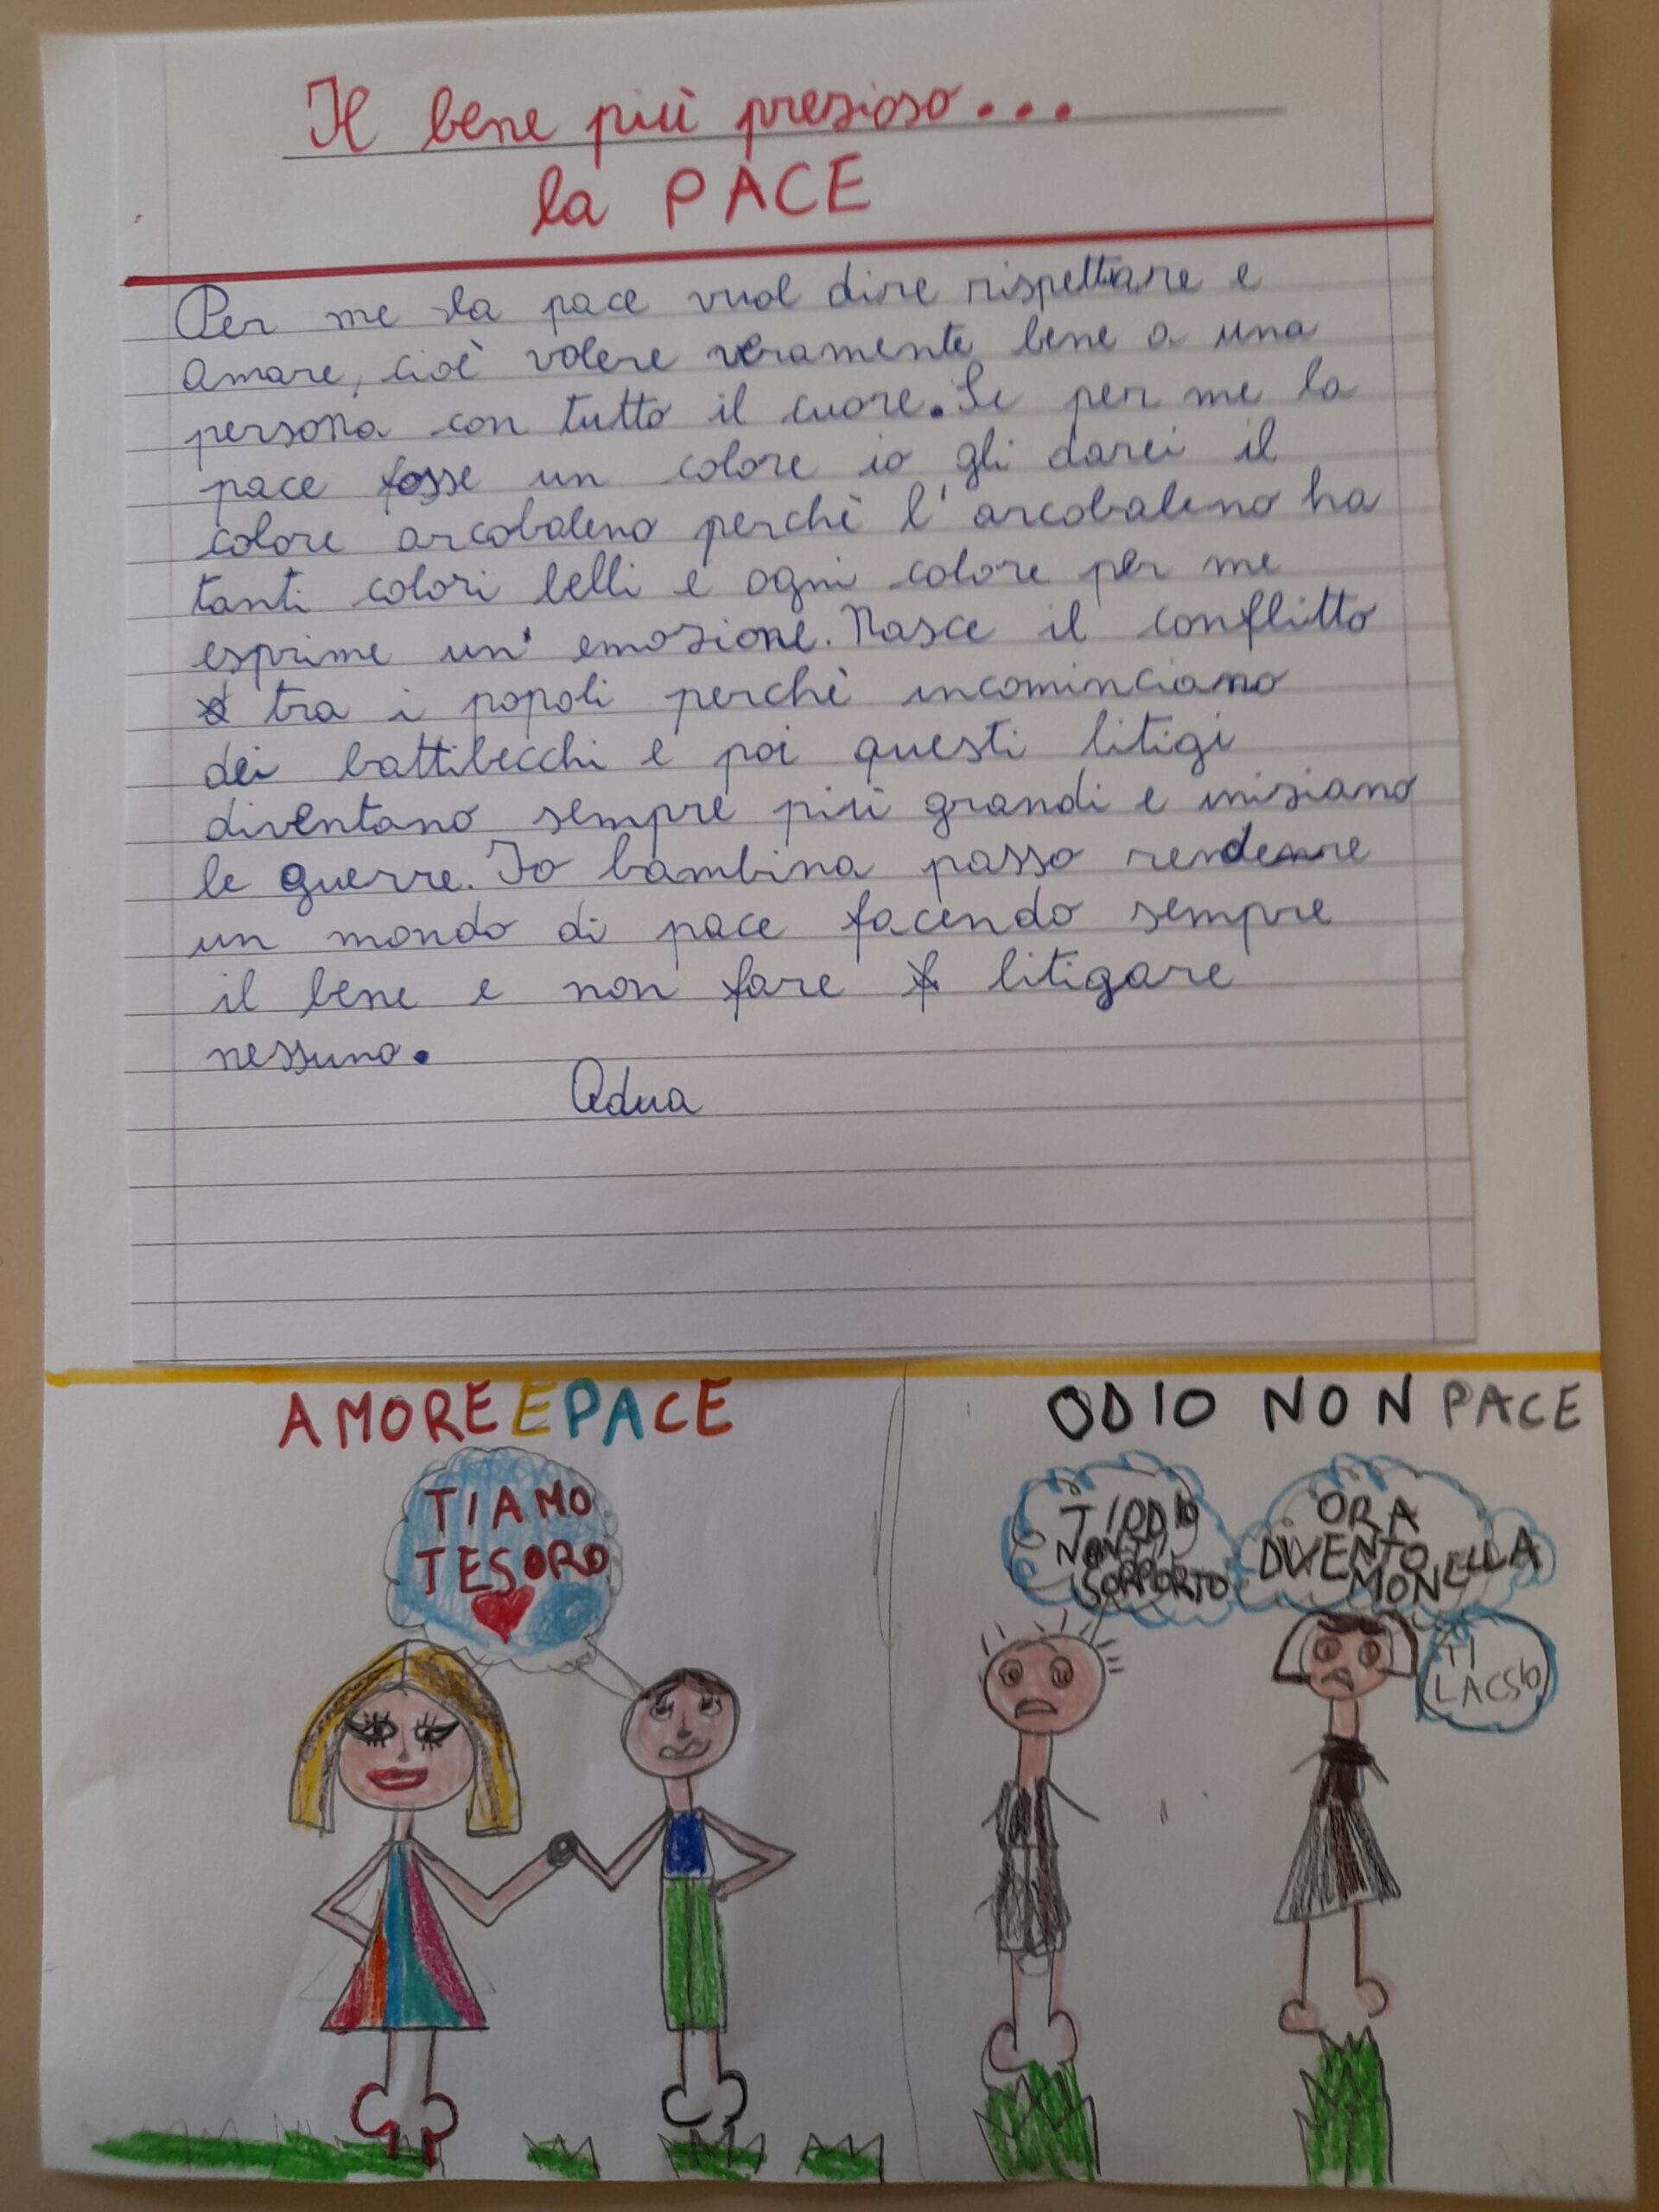 Il bene più prezioso...
la PACE
Per me la pace vuol dire rispettare e
amare, cioè volere veramente bene a una
persona con tutto il cuore. Se per me la
pace fosse un colore io gli darei il
colore arcobaleno perchè l'arcobaleno ha
tanti colori belli e ogni colore per me
esprime un' emozione. Nasce il conflitto
tra i popoli perchè incominciano
dei battibecchi e poi questi litigi
diventano sempre più grandi e iniziano
le guerre. Io bambina posso rendere
un mondo di pace facendo sempre
il bene e non fare litigare
nessuno.
Adua
AMORE E PACE
ODIO NON PACE
TI AMO
TESORO
TI ODIO
NON TI
SOPPORTO
ORA
DIVENTO
MONELLA
TI
LACSIO